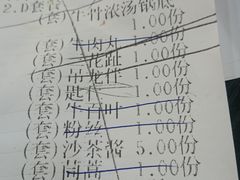 (套)牛骨浓汤锅底
1.00份
(套)牛肉丸 1.00份
(套)花趾 1.00份
(套)吊龙伴 1.00份
(套)匙仁 1.00份
(套)牛百叶 1.00份
(套)粉丝 1.00份
(套)沙茶酱 5.00份
(套)茼蒿 1.00份